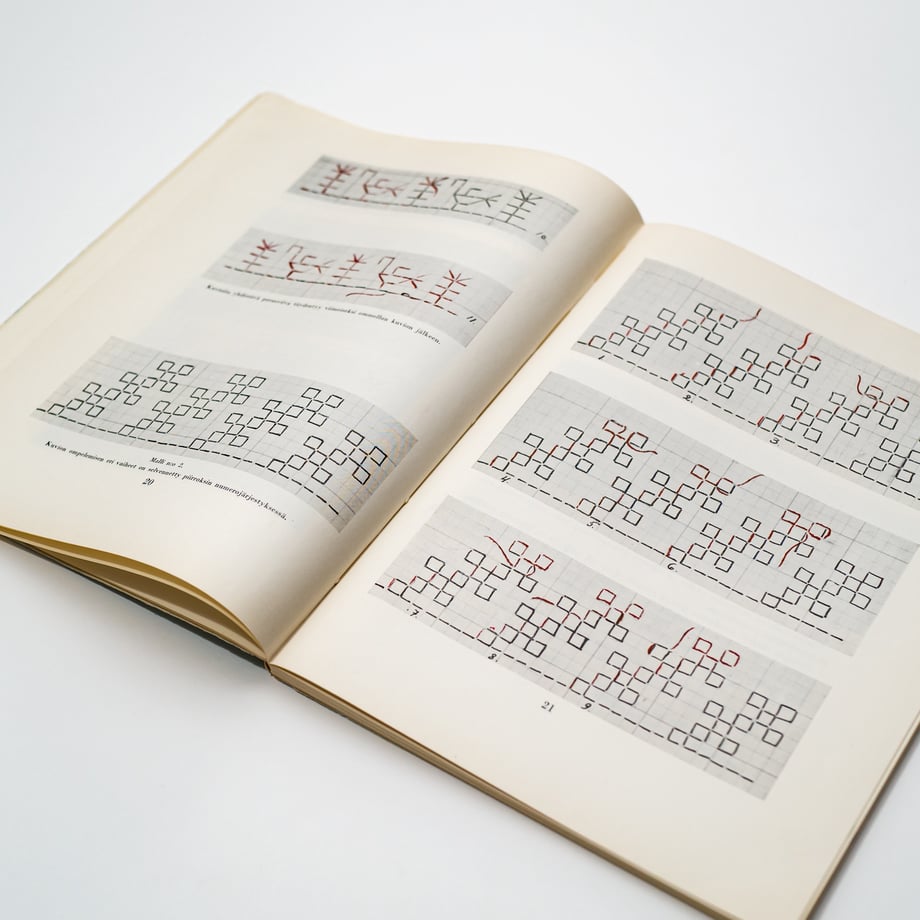 10.
11.
Kuvioita yhdistävä perusviiva täydentyy viimeiseksi ommellun kuvion jälkeen.
Malli n:o 2.
Kuvion ompelemisen eri vaiheet on selvennetty piirroksin numerojärjestyksessä.
20
2.
3.
4.
5.
6.
7.
8.
9.
21